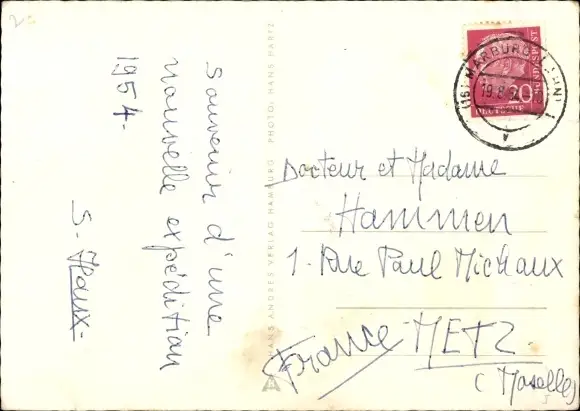 2
Souvenir d'une
nouvelle expédition
1954.
S. Haux.
HANS ANDRES VERLAG HAMBURG PHOTO: HANS HARTZ
(16) MARBURG (LAHN) 1
19.8.54
V
20
DEUTSCHE BUNDESPOST
Docteur et Madame
Hammen
1. Rue Paul Michaux
France METZ.
(Moselle)